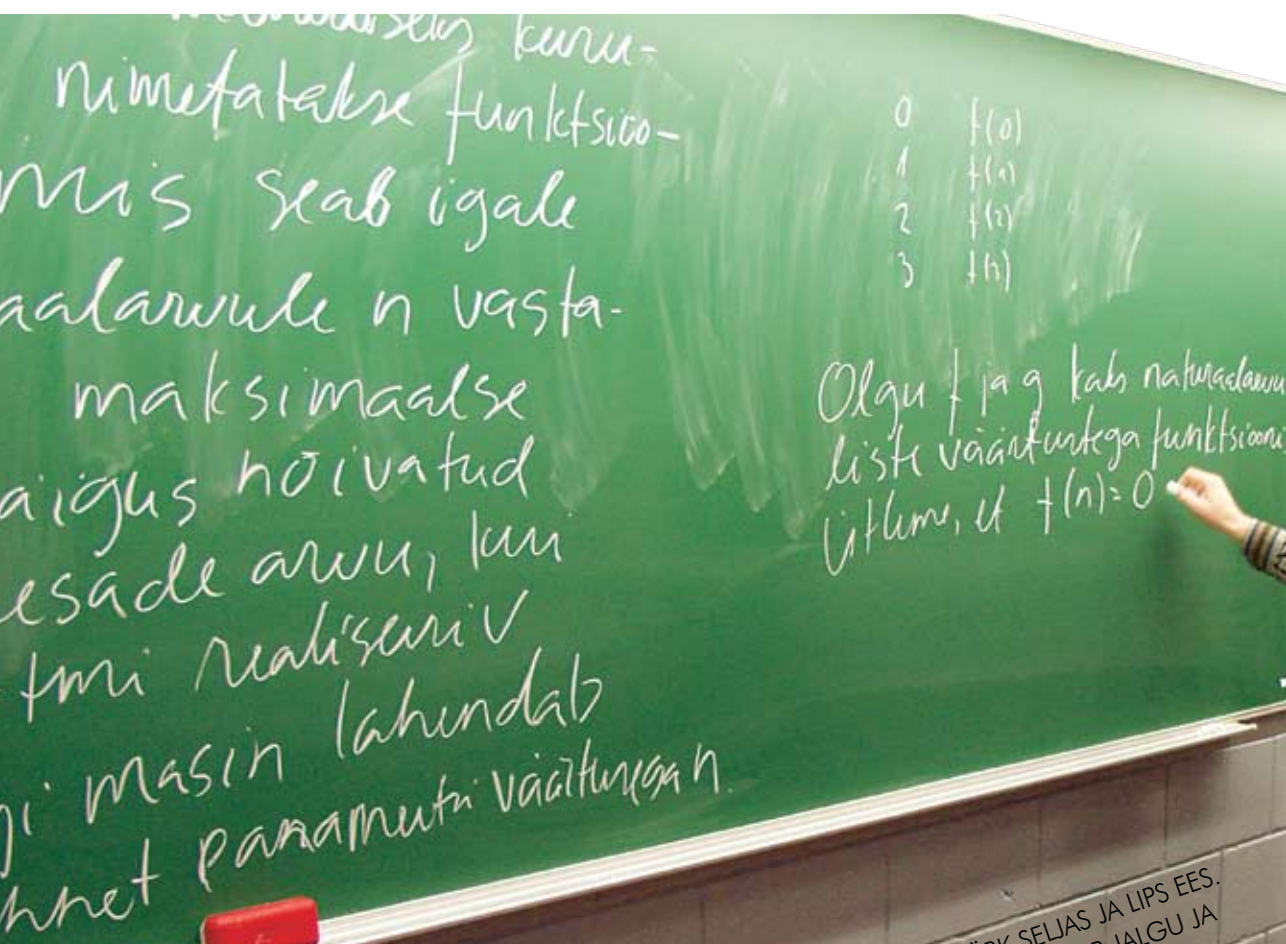 keeru-
nimetatakse funktsioo-
mis seab igale
aalarvule n vasta-
maksimaalse
aigus hõivatud
esade arvu, kui
tmi realiseeriv
gi masin lahendab
annet parameetri väärtusega n.
0 f(0)
1 f(1)
2 f(2)
3 f(n)
Olgu f ja g kaks naturaalarvu
liste väärtustega funktsiooni
Ütleme, et f(n)=0
SELJAS JA LIPS EES.
JALGU JA